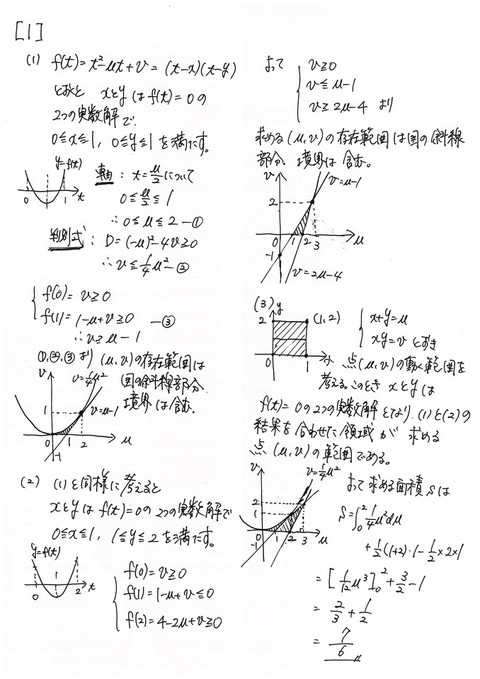 [1]
(1) f(t)=t²-ut+v=(t-x)(t-y)
とおくと xとyはf(t)=0の
2つの実数解で、
0≦x≦1, 0≦y≦1を満たす。
y=f(t)
0 1 t
軸: t=u/2について
0≦u/2≦1
∴0≦u≦2 —①
判別式: D=(-u)²-4v≧0
∴v≦1/4u² —②
{ f(0)=v≧0
f(1)=1-u+v≧0 —③
∴v≧u-1
①,②,③より(u,v)の存在範囲は
図の斜線部分
境界は含む。
v v=1/4u²
1 v=u-1
0 1 2 u
-1
(2) (1)と同様に考えると
xとyはf(t)=0の2つの実数解で
0≦x≦1, 1≦y≦2を満たす。
y=f(t)
0 1 2 t
{ f(0)=v≧0
f(1)=1-u+v≦0
f(2)=4-2u+v≧0
よって { v≧0
v≦u-1
v≧2u-4 より
求める(u,v)の存在範囲は図の斜線
部分 境界は含む。
v v=u-1
2
0 1 2 3 u
-1
v=2u-4
(3) y
2 (1,2)
0 1 x
{ x+y=u
xy=v とおき
点(u,v)の動く範囲を
考える。このとき xとyは
f(t)=0の2つの実数解となり、(1)と(2)の
結果を合わせた領域が求める
点(u,v)の範囲である。
v v=1/4u²
2
1
0 1 2 3 u
-1
よって求める面積Sは
S=∫₀²1/4u²du
+1/2(1+2)·1-1/2×2×1
=[1/12u³]₀²+3/2-1
=2/3+1/2
=7/6